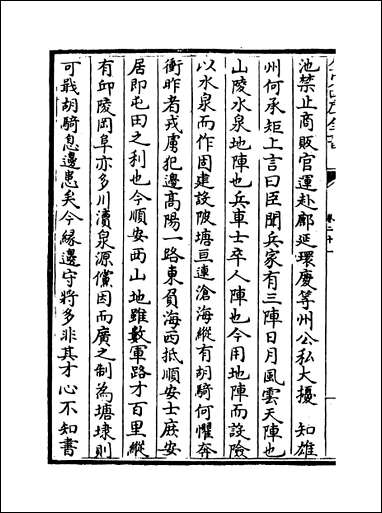 池禁止商販官運赴鄜延環慶等州公私大擾　知雄
州何承矩上言曰臣聞兵家有三陣日月風雲天陣也
山陵水泉地陣也兵車士卒人陣也今用地陣而設險
以水泉而作固建設陂塘亘連滄海縱有胡騎何懼奔
衝昨者戎虜犯邊髙陽一路東負海西抵順安士庶安
居即屯田之利也今順安西山地雖數軍路才百里縱
有邱陵岡阜亦多川瀆泉源儻因而廣之制為塘埭則
可戢胡騎息邊患矣今縁邊守將多非其才心不知書